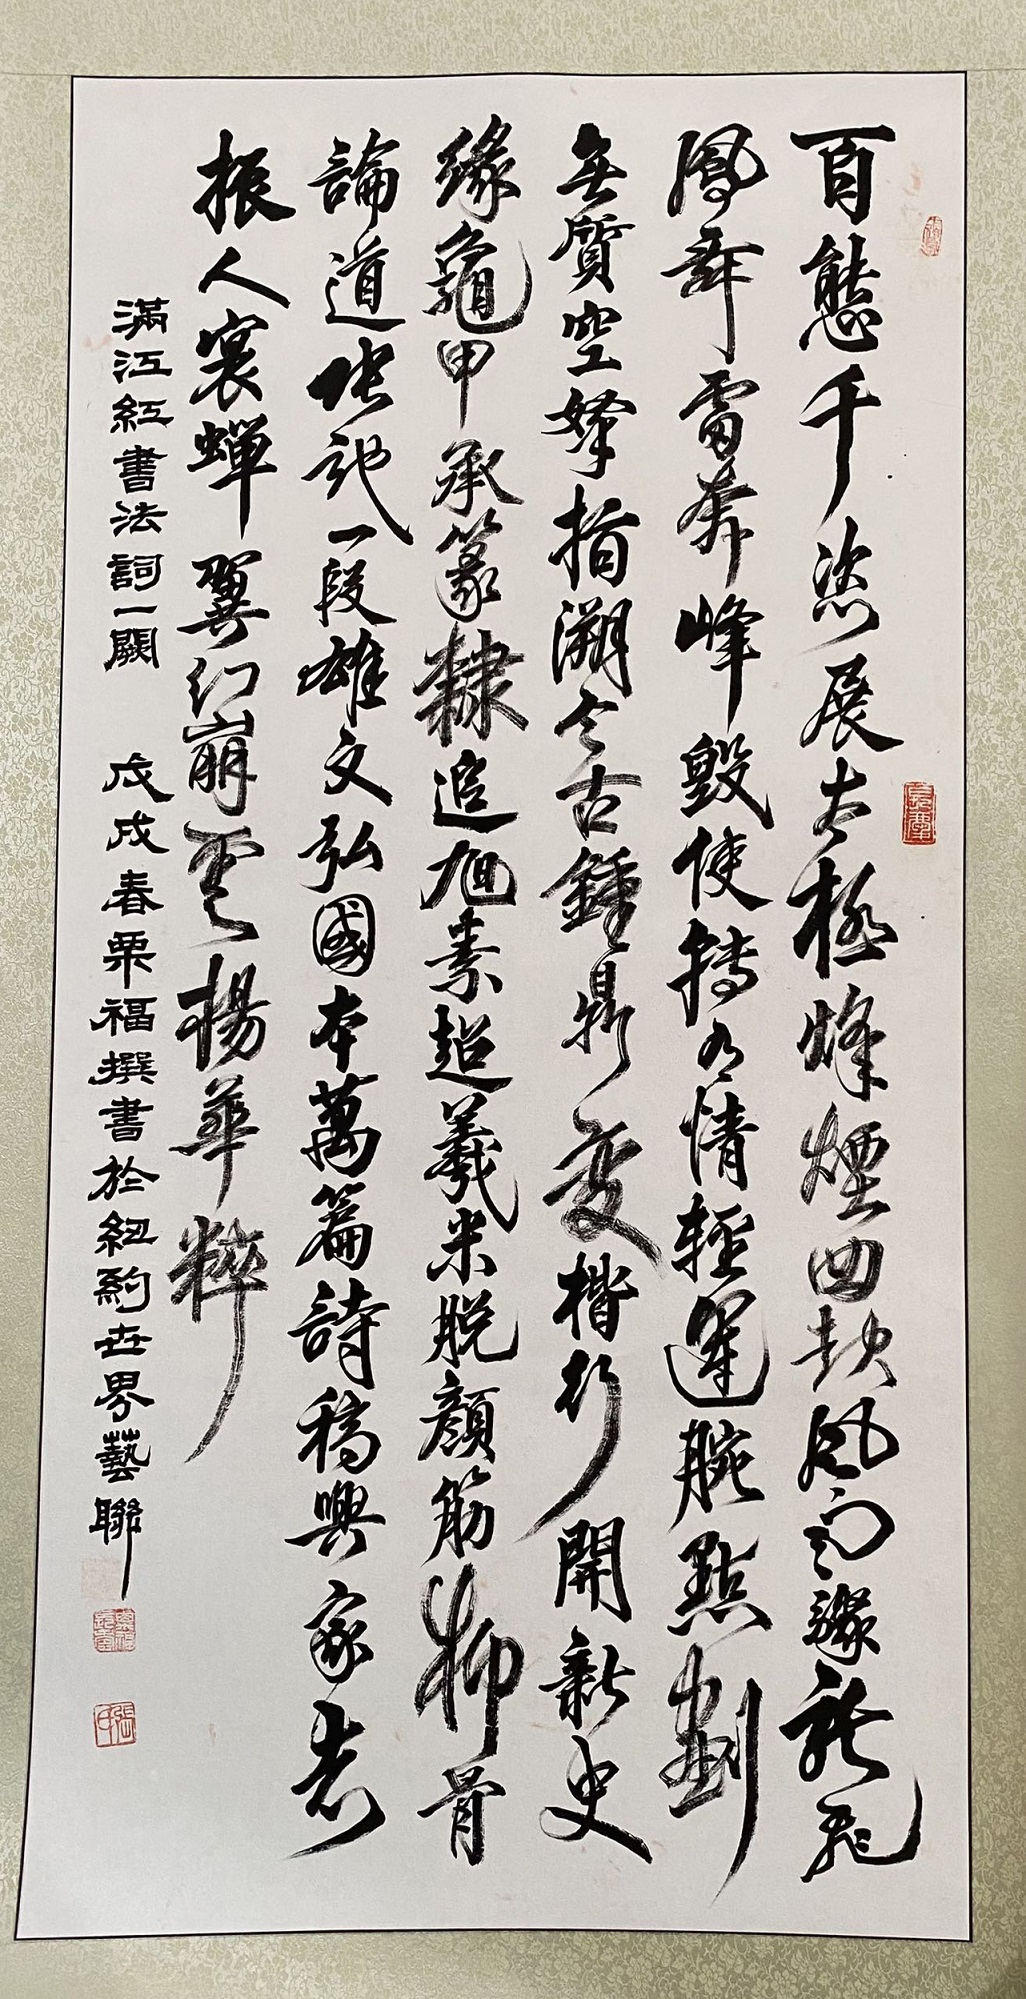 百態千恣展太極烽煙四起風雨驟龍飛
鳳舞雷奔峰毀使轉有情輕運腕點劃
無質空揮指溯今古鍾鼎變楷行開新史
緣龜甲承篆隸追旭素超羲米脫顏筋柳骨
論道張池一段雄文弘國本萬篇詩稿興家志
振人寰蟬翼幻崩雲揚華粹
滿江紅書法詞一闋 戊戌春栗福撰書於紐約世界藝聯